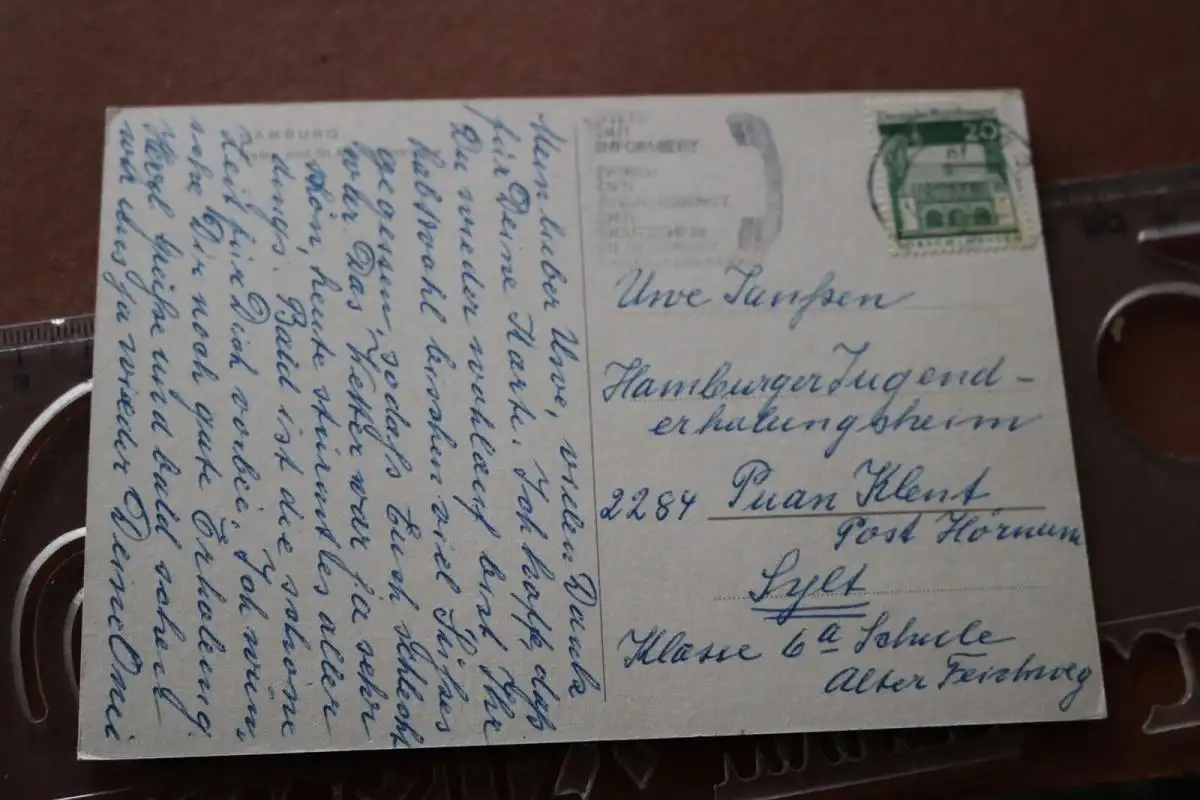 HAMBURG
Mein lieber Uwe, vielen Dank
für Deine Karte. Ich hoffe, daß
Du wieder wohlauf bist. Ihr
habt wohl bisschen viel Süßes
gegessen, sodaß Euch schlecht
war. Das Wetter war ja sehr
schön, heute stürmt es aller
dings. Bald ist die schöne
Zeit für Dich vorbei. Ich wün
sche Dir noch gute Erholung.
Herzl. Grüße und bald sehen
wir uns ja wieder Deine Omi
INFORMIERT
DURCH
DEN
DER
DEUTSCHEN
20
Uwe Janßen
Hamburger Jugend-
erholungsheim
2284 Puan Klent
Post Hörnum
Sylt
Klasse 6a Schule
Alter Teichweg